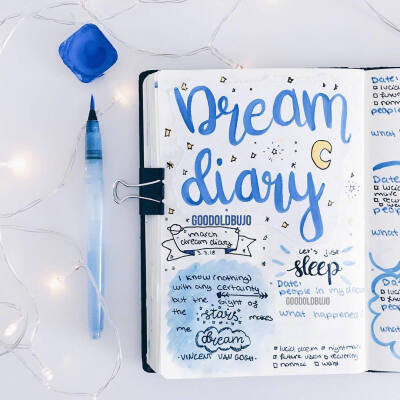 Dream
diary
GOODOLDBUJO
march
dream diary
3.3.18
I know (nothing)
with any certainty
but the sight of
the stars makes
me dream
-VINCENT VAN GOGH-
let's just
sleep
Date:
people in my dream
GOODOLDBUJO
what happened?
lucid dream nightmare
future vision recurring
normal weird
Date:
lucid
future
normal
people
what
Date:
lucid
people
what
Date:
lucid
people
what